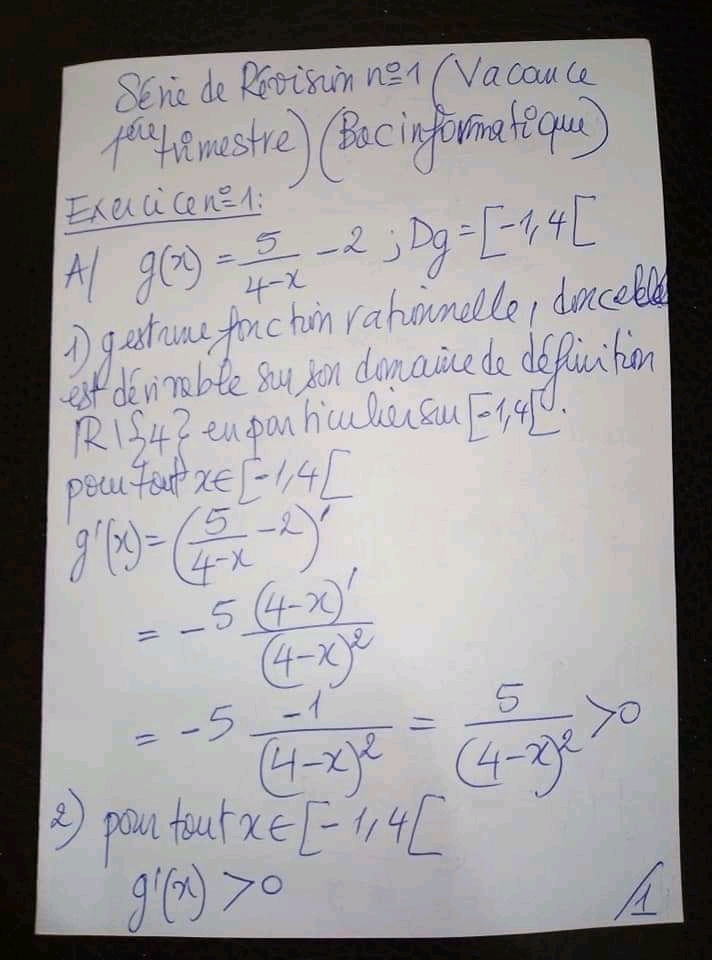 Série de Révision n°1 (Vacance
1ère trimestre) (Bac informatique)
Exercice n°1:
A/ g(x) = 5/(4-x) - 2 ; Dg = [-1,4[
1) g est une fonction rationnelle, donc elle
est dérivable sur son domaine de définition
IR\{4} en particulier sur [-1,4[.
pour tout x∈[-1,4[
g'(x) = (5/(4-x) - 2)'
= -5 (4-x)'/(4-x)²
= -5 -1/(4-x)² = 5/(4-x)² > 0
2) pour tout x∈[-1,4[
g'(x) > 0
/1